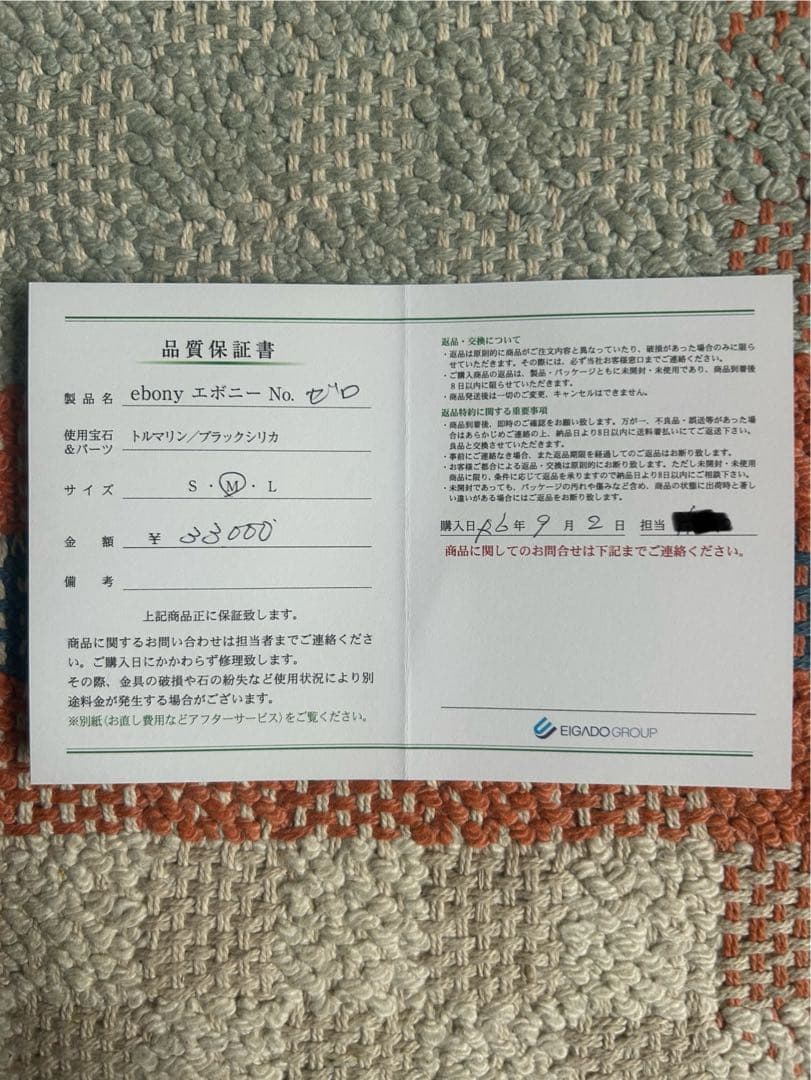 品質保証書
製品名 ebony エボニー No. ゼロ
使用宝石&パーツ トルマリン／ブラックシリカ
サイズ S・M・L
金額 ¥ 33,000
備考
上記商品正に保証致します。
商品に関するお問い合わせは担当者までご連絡くださ
い。ご購入日にかかわらず修理致します。
その際、金具の破損や石の紛失など使用状況により別
途料金が発生する場合がございます。
※別紙（お直し費用などアフターサービス）をご覧ください。
返品・交換について
・返品は原則的に商品がご注文内容と異なっていたり、破損があった場合のみに限ら
せていただきます。その際には、必ず当社お客様窓口までご連絡ください。
・ご購入商品の返品は、製品・パッケージともに未開封・未使用であり、商品到着後
8日以内に限らせていただきます。
・商品発送後は一切のご変更、キャンセルはできません。
返品特約に関する重要事項
・商品到着後、即時のご確認をお願い致します。万が一、不良品・誤送等があった場
合はあらかじめご連絡の上、納品日より8日以内に送料着払いにてご返送下さい。
良品と交換させていただきます。
・事前にご連絡なき場合、また返品期限を経過してのご返品はお断り致します。
・お客様ご都合による返品・交換は原則的にお断り致します。ただし未開封・未使用
商品に限り、条件に応じて返品を承りますので納品日より8日以内にご相談下さい。
・未開封であっても、パッケージの汚れや傷みなど含め、商品の状態に出荷時と著し
い違いがある場合にはご返品をお断り致します。
購入日 R6年 9月 2日 担当
商品に関してのお問合せは下記までご連絡ください。
EIGADO GROUP